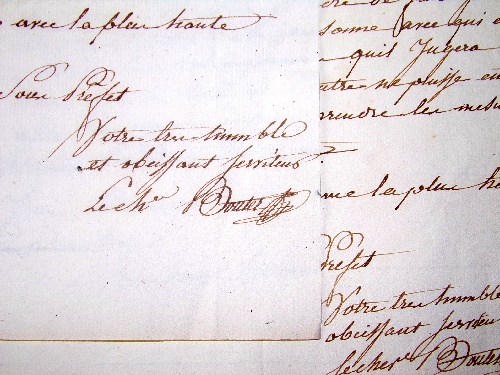 avec la plus haute
Sous Préfet
Votre tres humble
et obeissant serviteur
Le cher Boutet
sonne avec qui
quis Jugera
ne puisse en
prendre les mesu
la plus h
Préfet
Votre tres humble
obeissant serviteu
Le cher